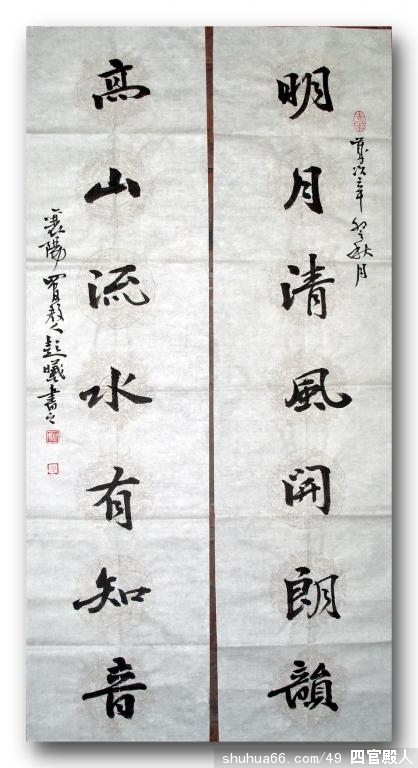 歲次辛卯秋月
明月清風開朗韻
高山流水有知音
襄陽四官殿人彭曦書之
shuhua66.com/49 四官殿人